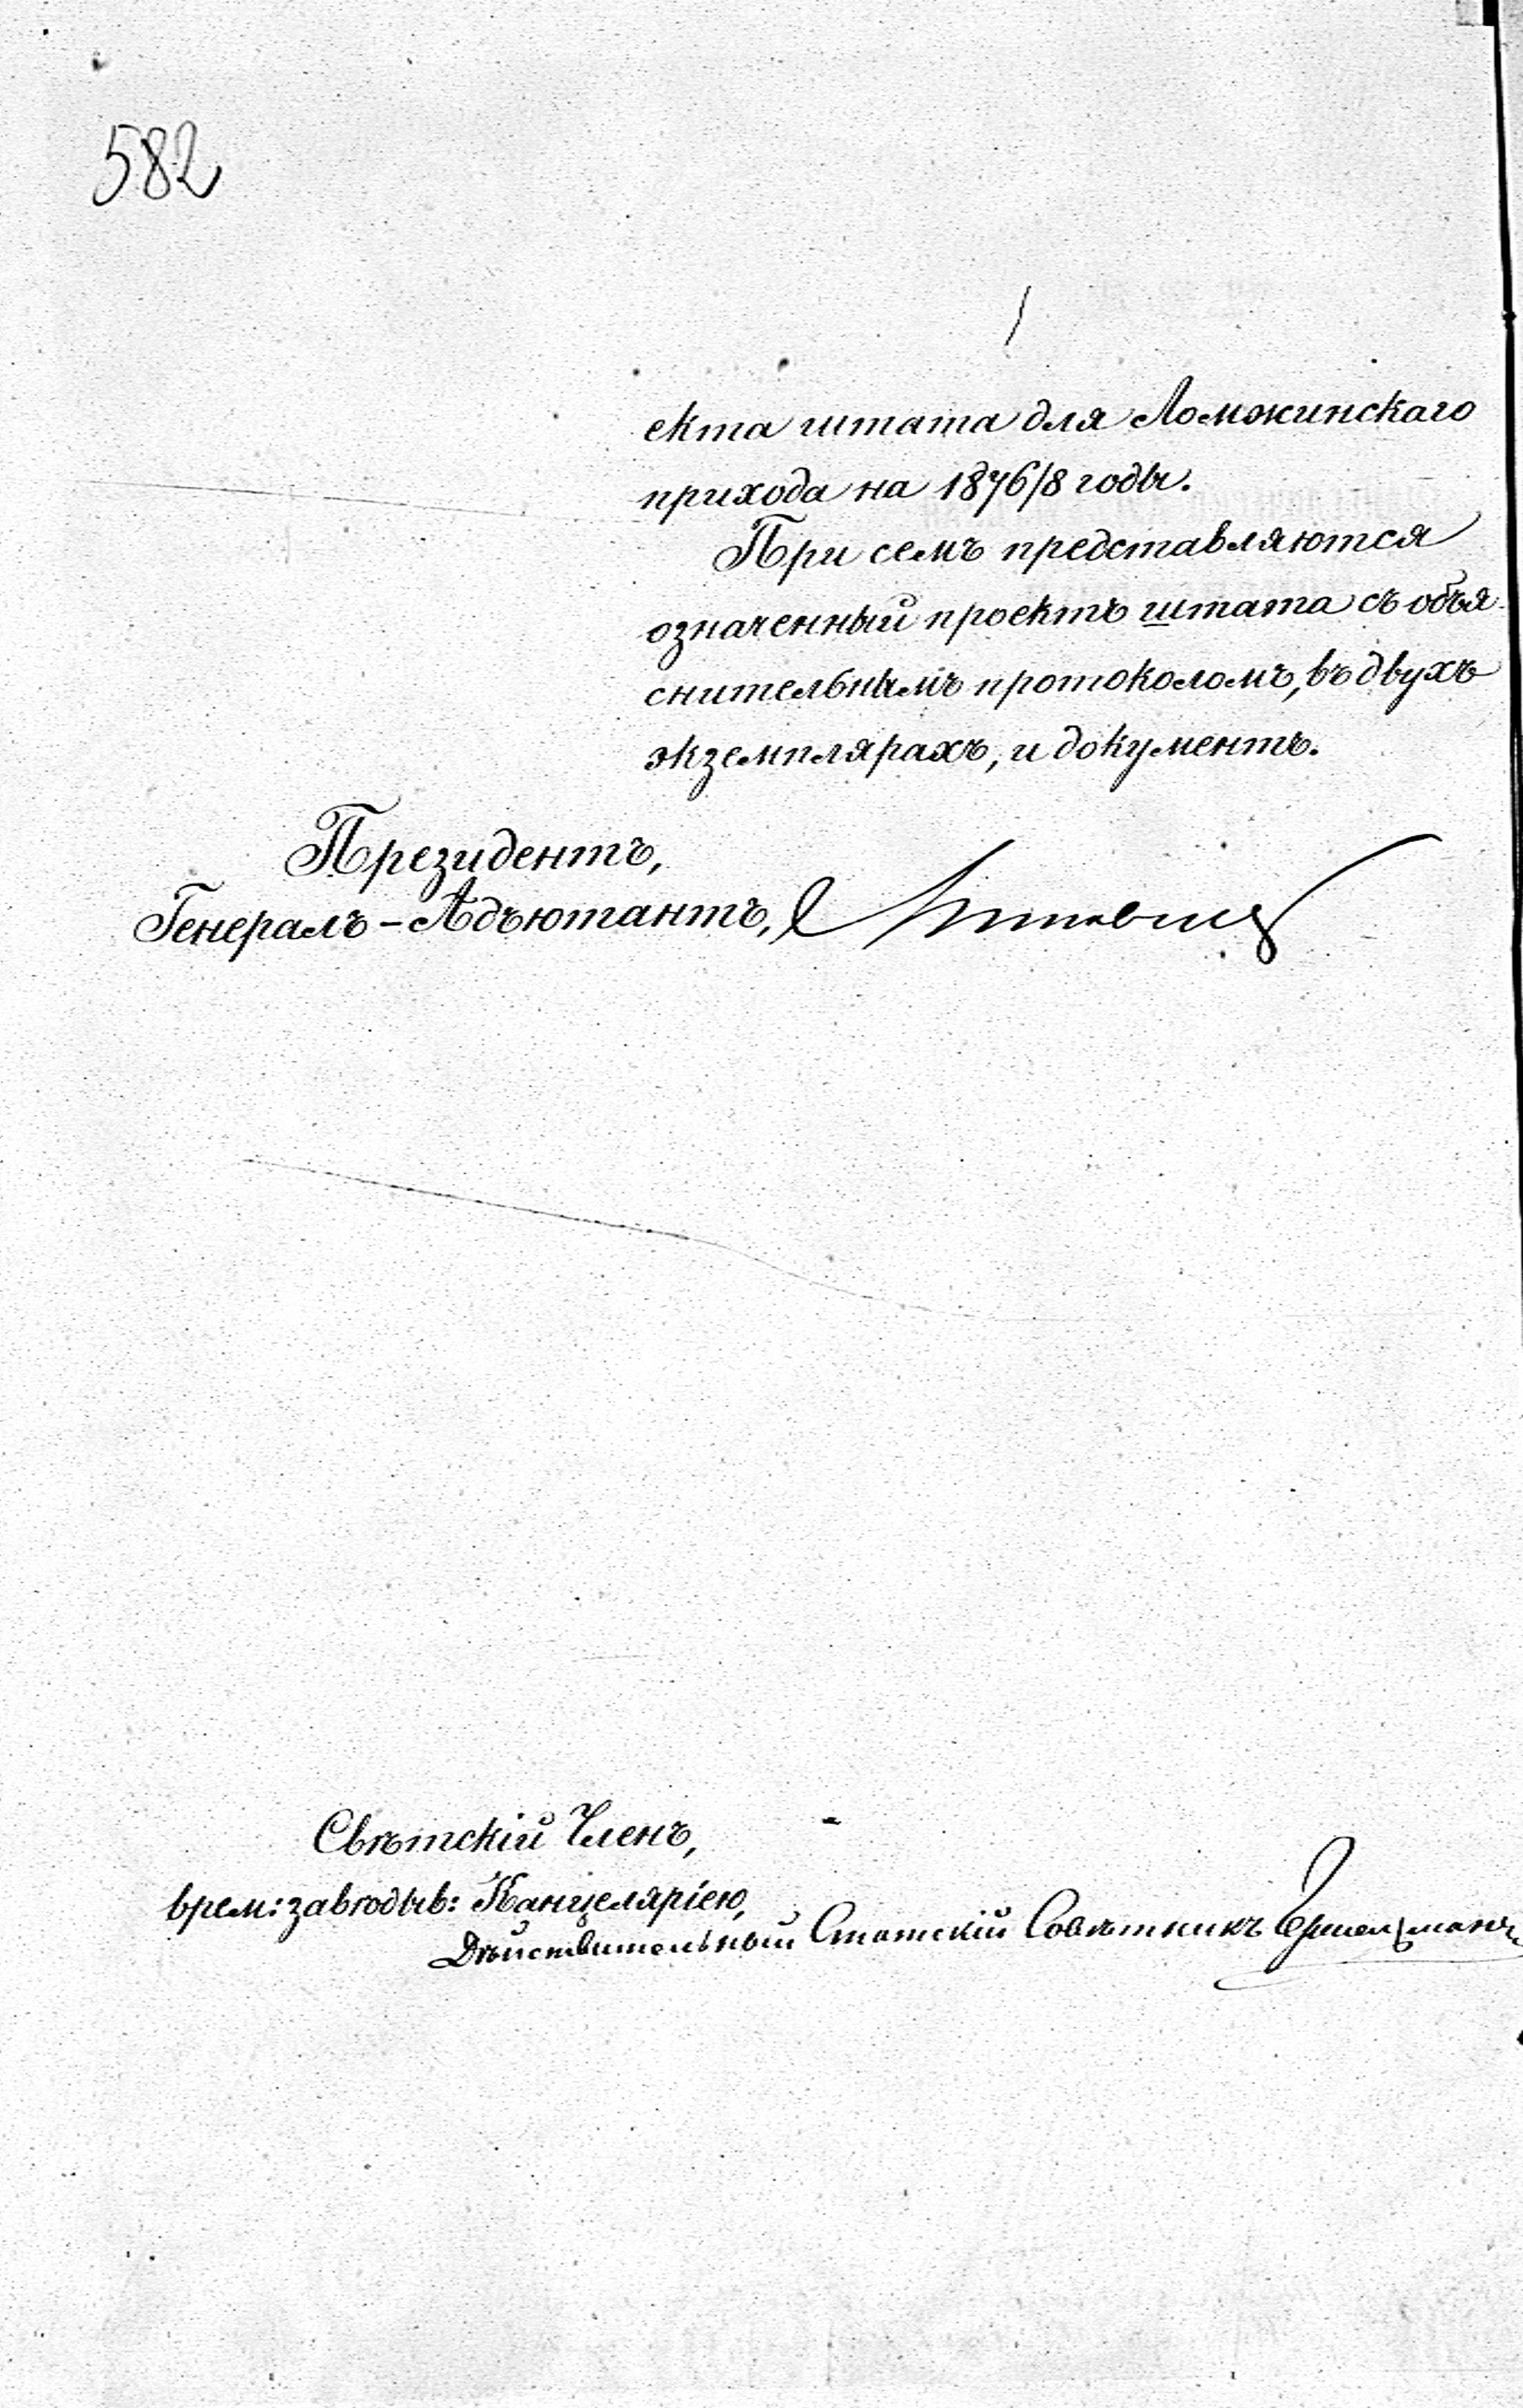 582
екта штата для Ломжинскаго
прихода на 1876/8 годы.
При семъ представляются
означенный проектъ штата съ объя-
снительнымъ протоколомъ, въ двухъ
экземплярахъ, и документъ.
Президентъ,
Генералъ-Адъютантъ,
Свѣтскій Членъ,
врем: завѣдыв: Канцеляріею,
Дѣйствительный Статскій Совѣтникъ